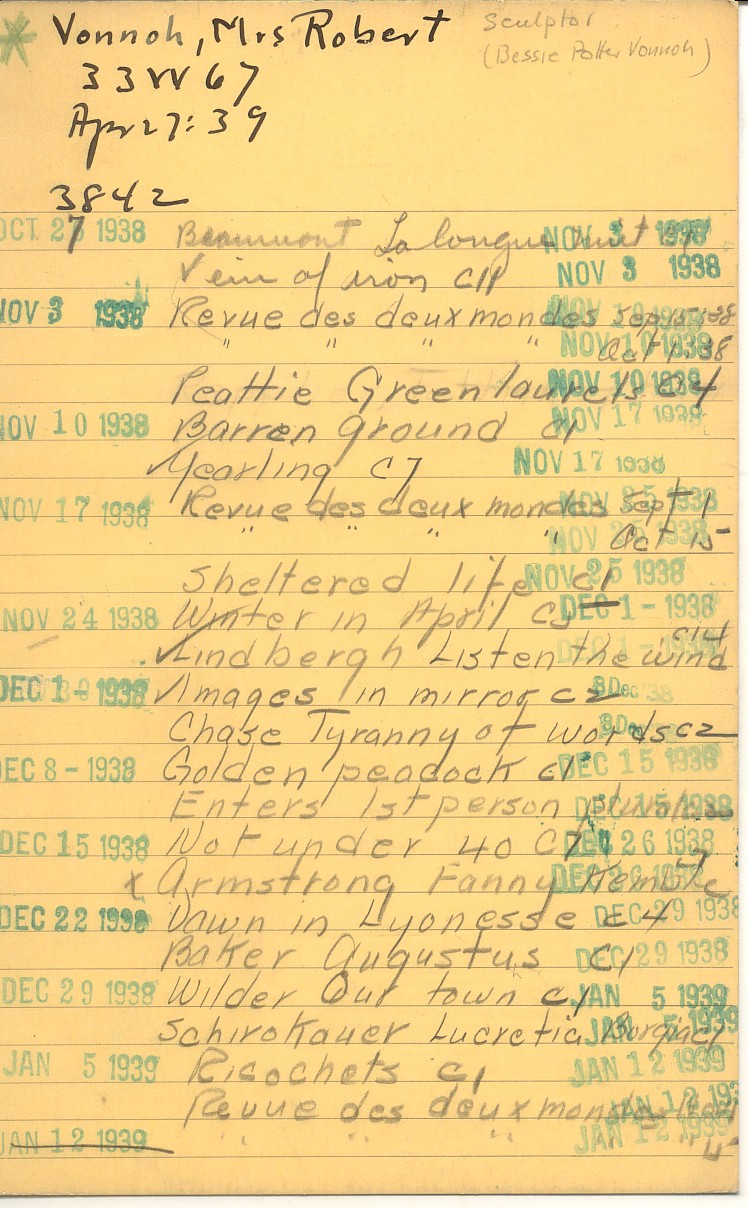 Vonnoh, Mrs Robert Sculptor
33 W 67 (Bessie Potter Vonnoh)
Apr 27:39
3842
OCT 27 1938 Beaumont La longue nuit NOV 3 1938
Vein of iron c11 NOV 3 1938
NOV 3 1938 Revue des deux mondes Sep 15:38 NOV 10 1938
" " " " Oct 1:38 NOV 10 1938
Peattie Green laurels c4 NOV 10 1938
NOV 10 1938 Barren ground c1 NOV 17 1938
✓ Yearling c7 NOV 17 1938
NOV 17 1938 Revue des deux mondes Sept 1 NOV 25 1938
" " " " Oct 15 NOV 25 1938
Sheltered life c1 NOV 25 1938
NOV 24 1938 Winter in April c3 DEC 1 - 1938
✓ Lindbergh Listen the wind c14 DEC 1 - 1938
DEC 1 - 1938 ✓ Images in mirror c2 8 Dec '38
Chase Tyranny of words c2 8 Dec
DEC 8 - 1938 Golden peacock c1 DEC 15 1938
Enters 1st person DEC 15 1938
DEC 15 1938 Not under 40 c7 DEC 26 1938
x Armstrong Fanny Kemble c7 DEC 26 1938
DEC 22 1938 Dawn in Lyonesse c4 DEC 29 1938
Baker Augustus c1 DEC 29 1938
DEC 29 1938 Wilder Our town c1 JAN 5 1939
Schirokauer Lucretia Borgia c1 JAN 5 1939
JAN 5 1939 Ricochets c1 JAN 12 1939
Revue des deux mondes JAN 12 1939
JAN 12 1939 " " " JAN 12 1939